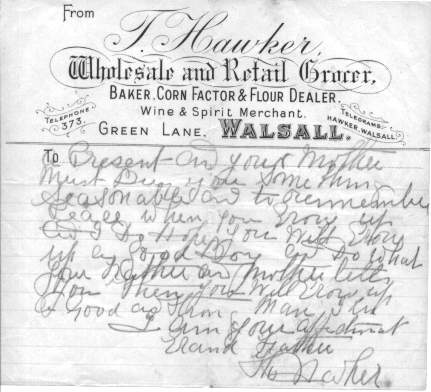 From
T. Hawker,
Wholesale and Retail Grocer,
Baker, Corn Factor & Flour Dealer.
Wine & Spirit Merchant.
Telephone 373.
Telegrams. Hawker. Walsall.
Green Lane, Walsall.
To Present and your Mother
Must Buy you Something
Seasonable and to remember
when you Grow up
I Do Hope you Will Grow
up a Good Boy and Do What
your Father an Mother tells
you then you Will Grow up
a Good an Strong Man
I am your affectionat
Grand Father
Hawker